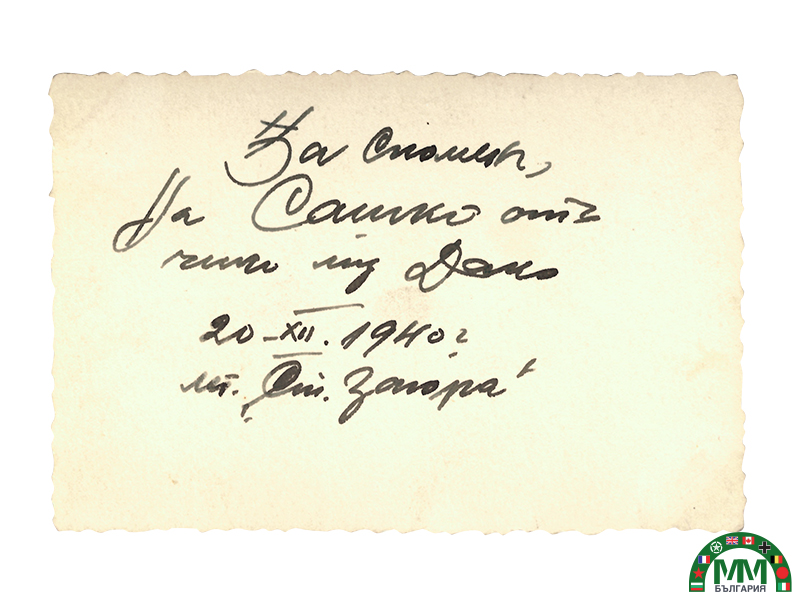 За спомен,
На Сашко отъ
чичо му Дако
20-XII. 1940 г
"Ст. Загора"
ММ
БЪЛГАРИЯ